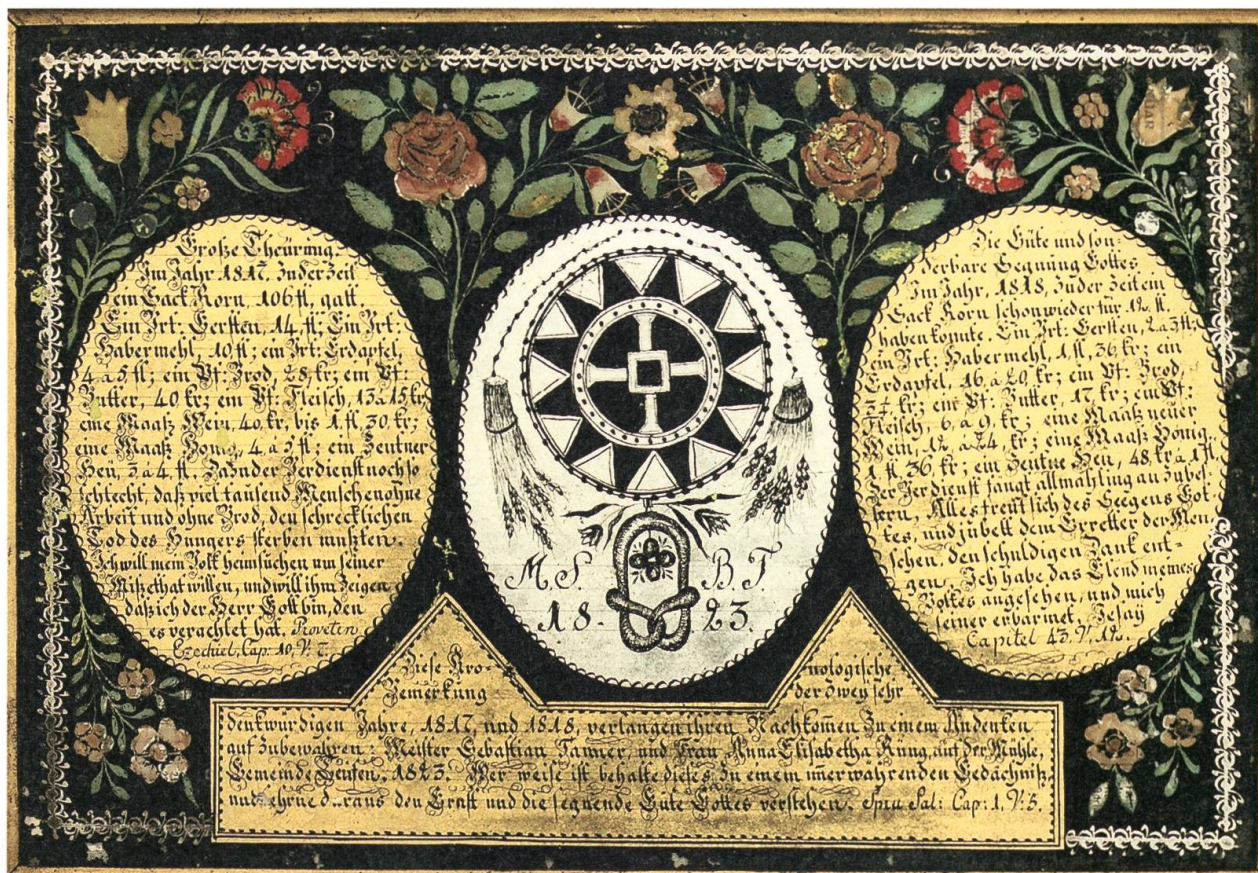 Große Theürung.
Im Jahr 1817. zu der Zeit
ein Sack Korn 106 fl. galt.
Ein Vrt: Gersten, 14 fl; Ein Vrt:
Habermehl, 10 fl; ein Vrt: Erdäpfel,
4 à 5 fl; ein Pf: Brod, 28 kr; ein Pf:
Butter, 40 kr; ein Pf: Fleisch, 13 à 15 kr
eine Maaß Wein, 40 kr, bis 1 fl, 30 kr;
eine Maaß Honig, 4 à 5 fl; ein Zentner
Heü, 3 à 4 fl. Da der Verdienst noch so
schlecht daß viel tausend Menschen ohne
Arbeit und ohne Brod, den schrecklichen
Tod des Hungers sterben mußten.
Ich will mein Volk heimsüchen um seiner
Mißethat willen, und will ihm Zeigen
daß ich der Herr Gott bin, den
es verachtet hat.
Ezechiel, Cap: 10, V:
M. S. B. T.
18 - 23.
Die Güte und son-
derbare Segnung Gottes
Im Jahr, 1818, zu der Zeit ein
Sack Korn schon wieder für 12 fl
haben konnte. Ein Vrt: Gersten, 2 à 3 fl;
ein Vrt: Habermehl, 1 fl, 36 kr; ein
Erdäpfel, 16 à 20 kr; ein Pf: Brod,
kr; ein Pf: Butter, 17 kr; ein Pf:
Fleisch, 6 à 9 kr; eine Maaß neuer
Wein, 12 à 24 kr; eine Maaß Honig,
1 fl. 36 kr; ein Zentne Heü, 48 kr à 1 fl.
Der Verdienst fängt allmähling an zu bes-
sern, Alles freüt sich des Seegens Got-
tes, und jubelt dem Erretter der Men-
schen, den schuldigen Dank ent-
gen. Ich habe das Elend meines
Volkes angesehen, und mich
seiner erbarmet, Jesay
Capitel 43. V. 12.
Diese Kro- nologische
Bemerkung der zwey sehr
denkwürdigen Jahre, 1817, und 1818, verlangen ihren Nachkomen zu einem Andenken
auf zubewahren: Meister Sebastian Tanner, und Frau Anna Elisabetha Kung, auf der Mühle,
Gemeinde 1823. Wer weise ist behalte dieses zu einem imerwährenden Gedächtniß,
und den Ernst und die segnende Güte Gottes verstehen. Sal: Cap: 1, V: 5.